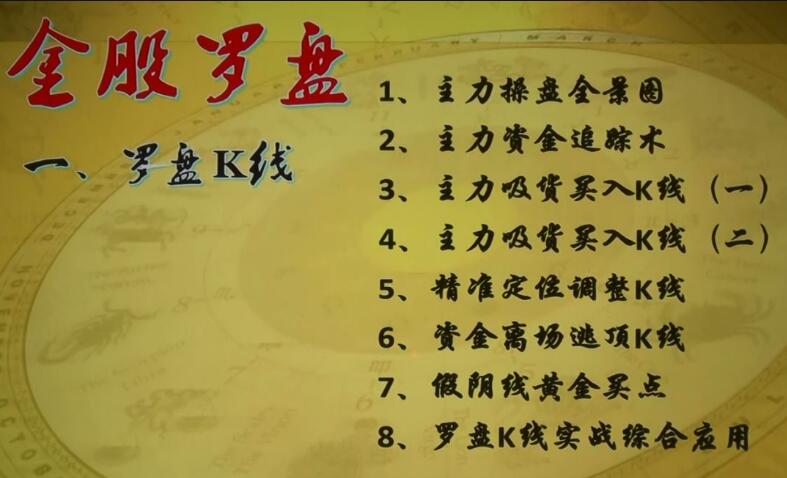 金股罗盘
一、罗盘K线
1、主力操盘全景图
2、主力资金追踪术
3、主力吸货买入K线（一）
4、主力吸货买入K线（二）
5、精准定位调整K线
6、资金离场逃顶K线
7、假阴线黄金买点
8、罗盘K线实战综合应用
FEBRUARY
MARCH
DECEMBER
NOVEMBER
OCTOB